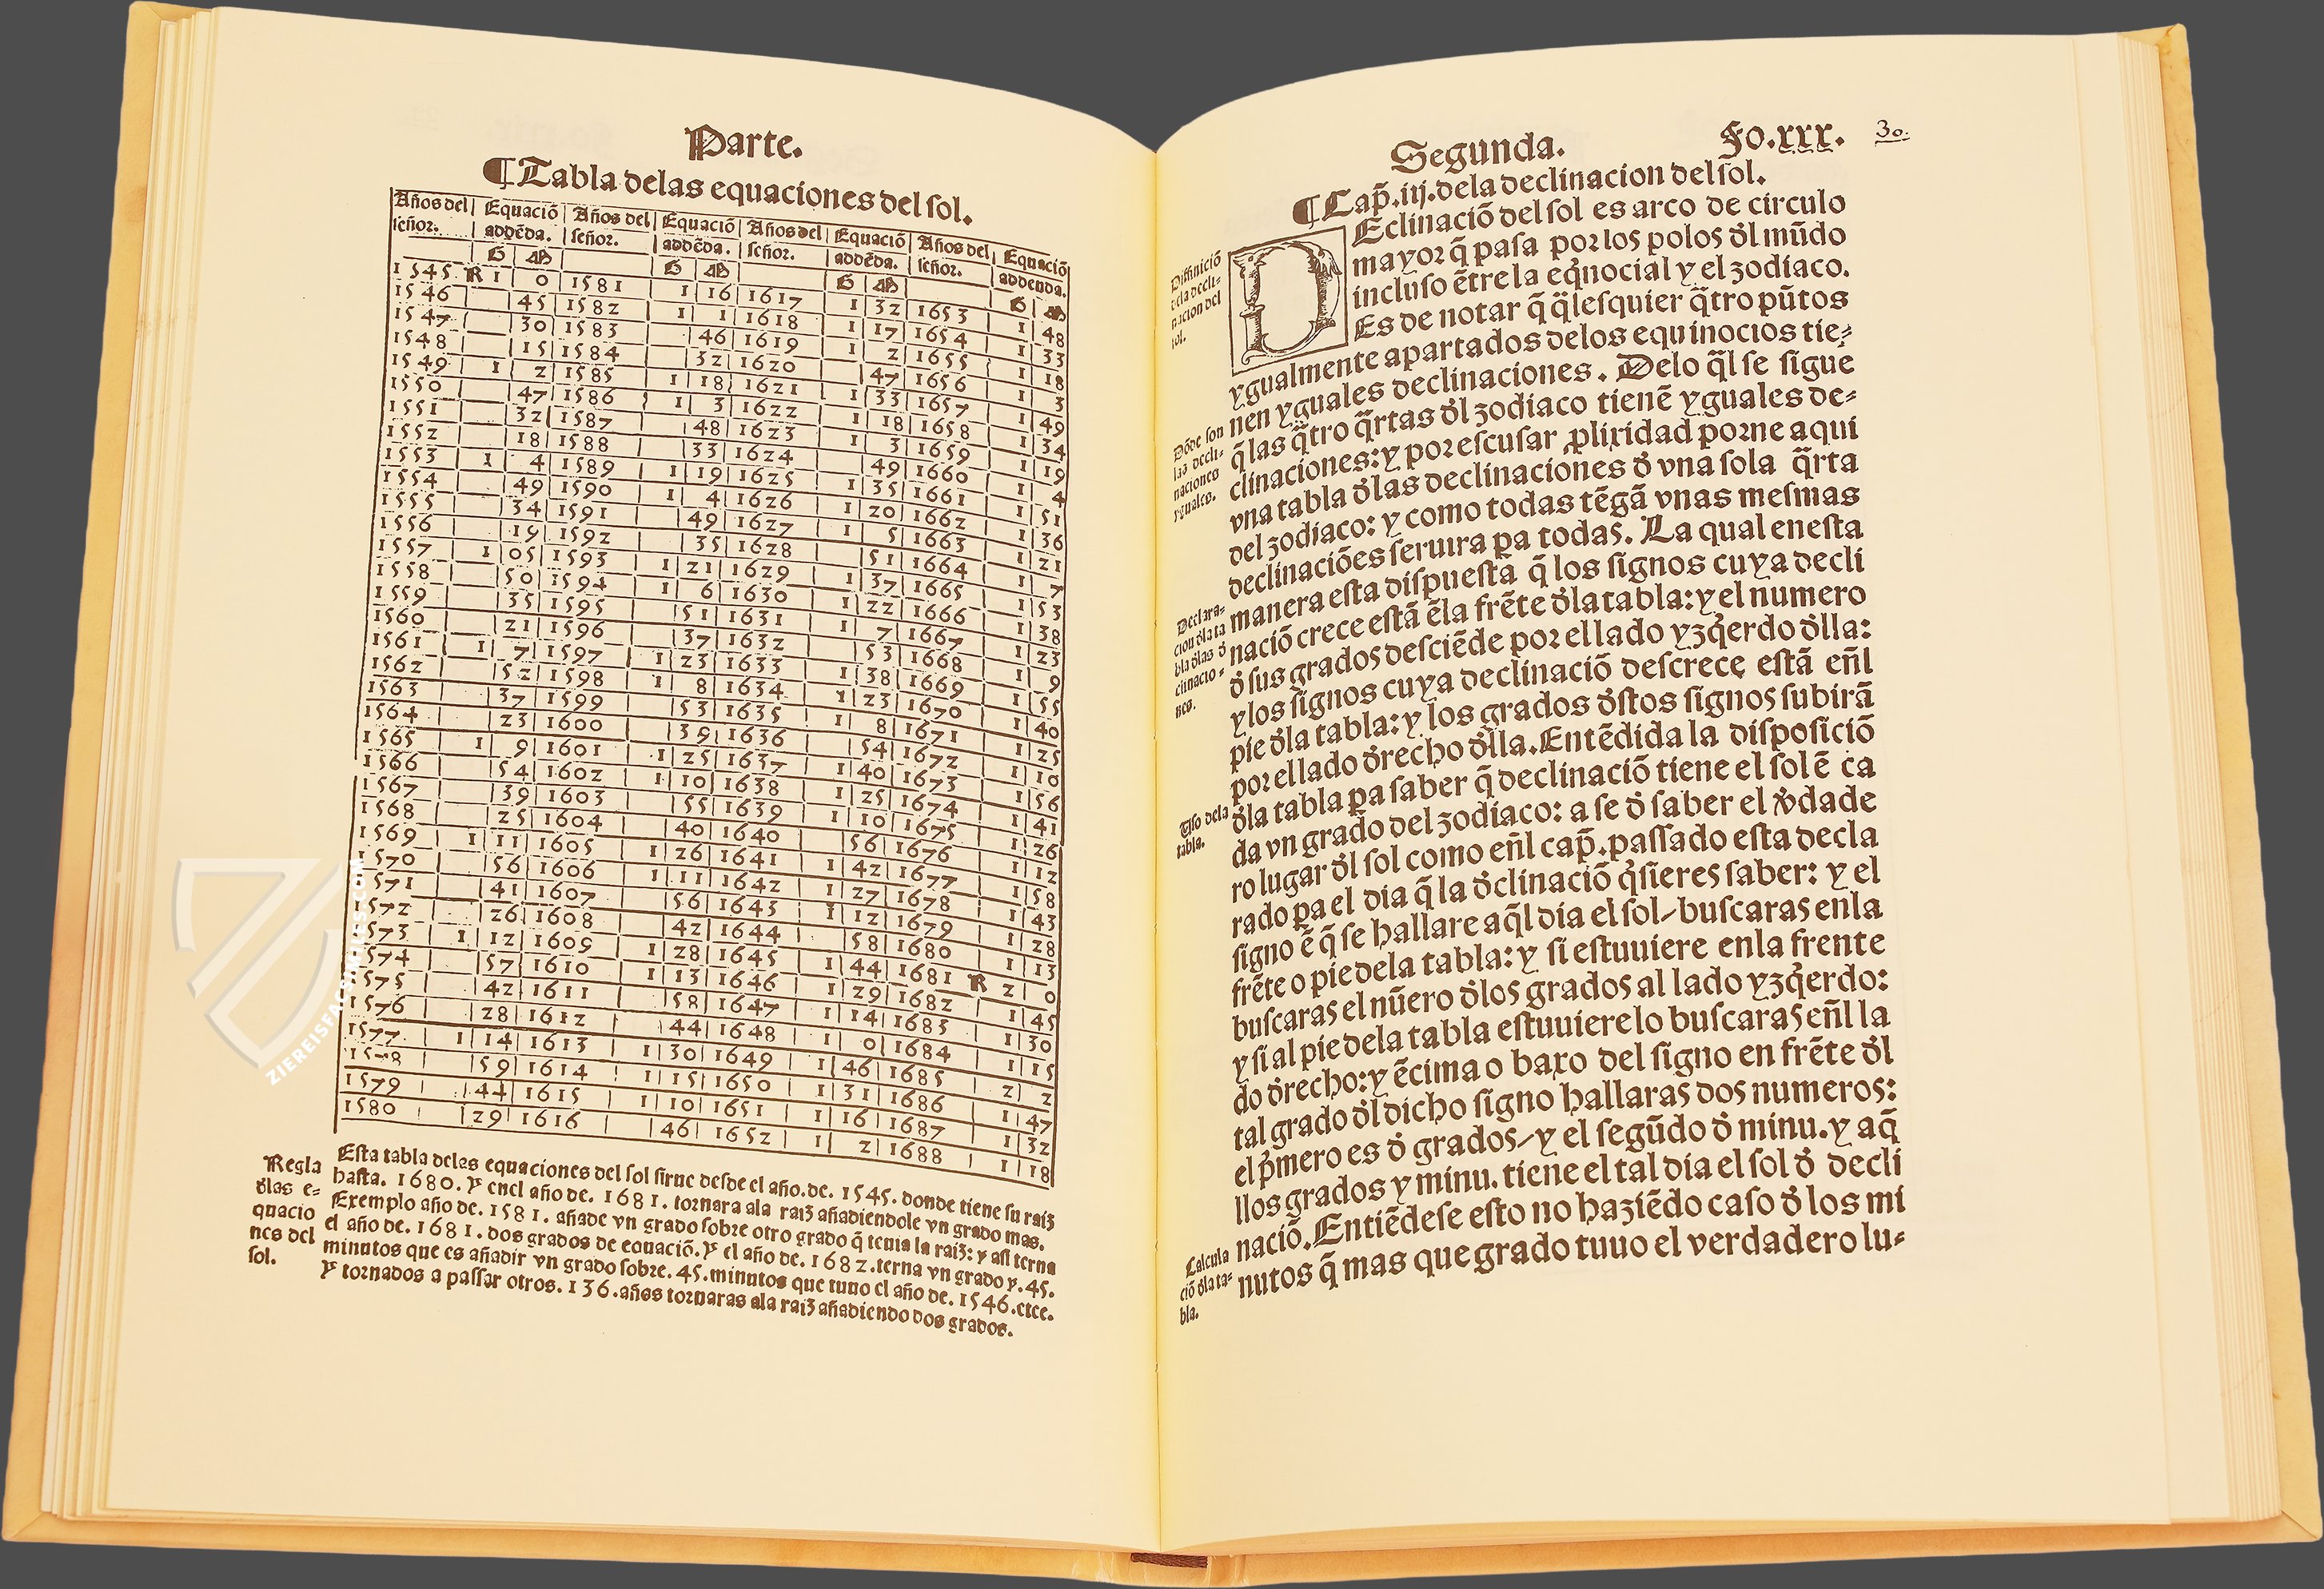 Parte.
¶ Tabla delas equaciones del sol.
Años del señor. Equació addẽda. Años del señor. Equació addẽda. Años del señor. Equació addẽda. Años del señor. Equació addenda.
G M G M G M G M
1545 R 1 0 1581 1 16 1617 1 32 1653 1 48
1546 45 1582 1 1 1618 1 17 1654 1 33
1547 30 1583 46 1619 1 2 1655 1 18
1548 15 1584 32 1620 47 1656 1 3
1549 1 2 1585 1 18 1621 1 33 1657 1 49
1550 47 1586 1 3 1622 1 18 1658 1 34
1551 32 1587 48 1623 1 3 1659 1 19
1552 18 1588 33 1624 49 1660 1 4
1553 1 4 1589 1 19 1625 1 35 1661 1 51
1554 49 1590 1 4 1626 1 20 1662 1 36
1555 34 1591 49 1627 1 5 1663 1 21
1556 19 1592 35 1628 51 1664 1 7
1557 1 05 1593 1 21 1629 1 37 1665 1 53
1558 50 1594 1 6 1630 1 22 1666 1 38
1559 35 1595 51 1631 1 7 1667 1 23
1560 21 1596 37 1632 53 1668 1 9
1561 1 7 1597 1 23 1633 1 38 1669 1 55
1562 52 1598 1 8 1634 1 23 1670 1 40
1563 37 1599 53 1635 1 8 1671 1 25
1564 23 1600 39 1636 54 1672 1 10
1565 1 9 1601 1 25 1637 1 40 1673 1 56
1566 54 1602 1 10 1638 1 25 1674 1 41
1567 39 1603 55 1639 1 10 1675 1 26
1568 25 1604 40 1640 56 1676 1 12
1569 1 11 1605 1 26 1641 1 42 1677 1 58
1570 56 1606 1 11 1642 1 27 1678 1 43
1571 41 1607 56 1643 1 12 1679 1 28
1572 26 1608 42 1644 58 1680 1 13
1573 1 12 1609 1 28 1645 1 44 1681 R 2 0
1574 57 1610 1 13 1646 1 29 1682 1 45
1575 42 1611 58 1647 1 14 1683 1 30
1576 28 1612 44 1648 1 0 1684 1 15
1577 1 14 1613 1 30 1649 1 46 1685 2 2
1578 59 1614 1 15 1650 1 31 1686 1 47
1579 44 1615 1 10 1651 1 16 1687 1 32
1580 29 1616 46 1652 1 2 1688 1 18
Regla
đlas e=
quacio
nes del
sol.
Esta tabla delas equaciones del sol sirue desde el año.de. 1545. donde tiene su raiz
hasta. 1680. Y enel año de. 1681. tornara ala raiz añadiendole vn grado mas.
Exemplo año de. 1581. añade vn grado sobre otro grado q̃ tenia la raiz: y assi terna
el año de. 1681. dos grados de equació. Y el año de. 1682. terna vn grado y. 45.
minutos que es añadir vn grado sobre. 45. minutos que tuuo el año de. 1546. etce.
Y tornados a passar otros. 136. años tornaras ala raiz añadiendo dos grados.
ZIEREISFACSIMILES.COM
Segunda. Fo.xxx. 30.
¶ Cap̃.iij.dela declinacion del sol.
Diffinició
dela decli-
nacion del
sol.
DEclinació del sol es arco de circulo
mayor q̃ pasa por los polos đl mũdo
incluso ẽtre la eq̃nocial y el zodiaco.
Es de notar q̃ q̃lesquier q̃tro pũtos
ygualmente apartados delos equinocios tie=
nen yguales declinaciones. Delo q̃l se sigue
Dõde son
las decli-
naciones
yguales.
q̃ las q̃tro q̃rtas đl zodiaco tienẽ yguales de=
clinaciones: y por escusar ꝓlixidad porne aqui
vna tabla đlas declinaciones đ vna sola q̃rta
del zodiaco: y como todas tẽgã vnas mesmas
declinaciões seruira ꝑa todas. La qual enesta
Declara-
cion đla ta
bla đlas đ
clinacio-
nes.
manera esta dispuesta q̃ los signos cuya decli
nació crece estã ẽla frẽte đla tabla: y el numero
đ sus grados desciẽde por el lado yzq̃erdo đlla:
y los signos cuya declinació descrece estã eñl
pie đla tabla: y los grados đstos signos subirã
por el lado đrecho đlla. Entẽdida la disposició
Uso dela
tabla.
đla tabla ꝑa saber q̃ declinació tiene el sol ẽ ca
da vn grado del zodiaco: a se đ saber el v̄dade
ro lugar đl sol como eñl cap̃. passado esta decla
rado ꝑa el dia q̃ la đclinació q̃sieres saber: y el
signo ẽ q̃ se hallare aq̃l dia el sol/ buscaras enla
frẽte o pie dela tabla: y si estuuiere enla frente
buscaras el nũero đlos grados al lado yzq̃erdo:
y si al pie dela tabla estuuiere lo buscaras eñl la
do đrecho: y ẽcima o baxo del signo en frẽte đl
tal grado đl dicho signo hallaras dos numeros:
el p̃mero es đ grados/ y el segũdo đ minu. y aq̃
llos grados y minu. tiene el tal dia el sol đ decli
Calcula
ció đla ta-
bla.
nació. Entiẽdese esto no haziẽdo caso đ los mi
nutos q̃ mas que grado tuuo el verdadero lu=